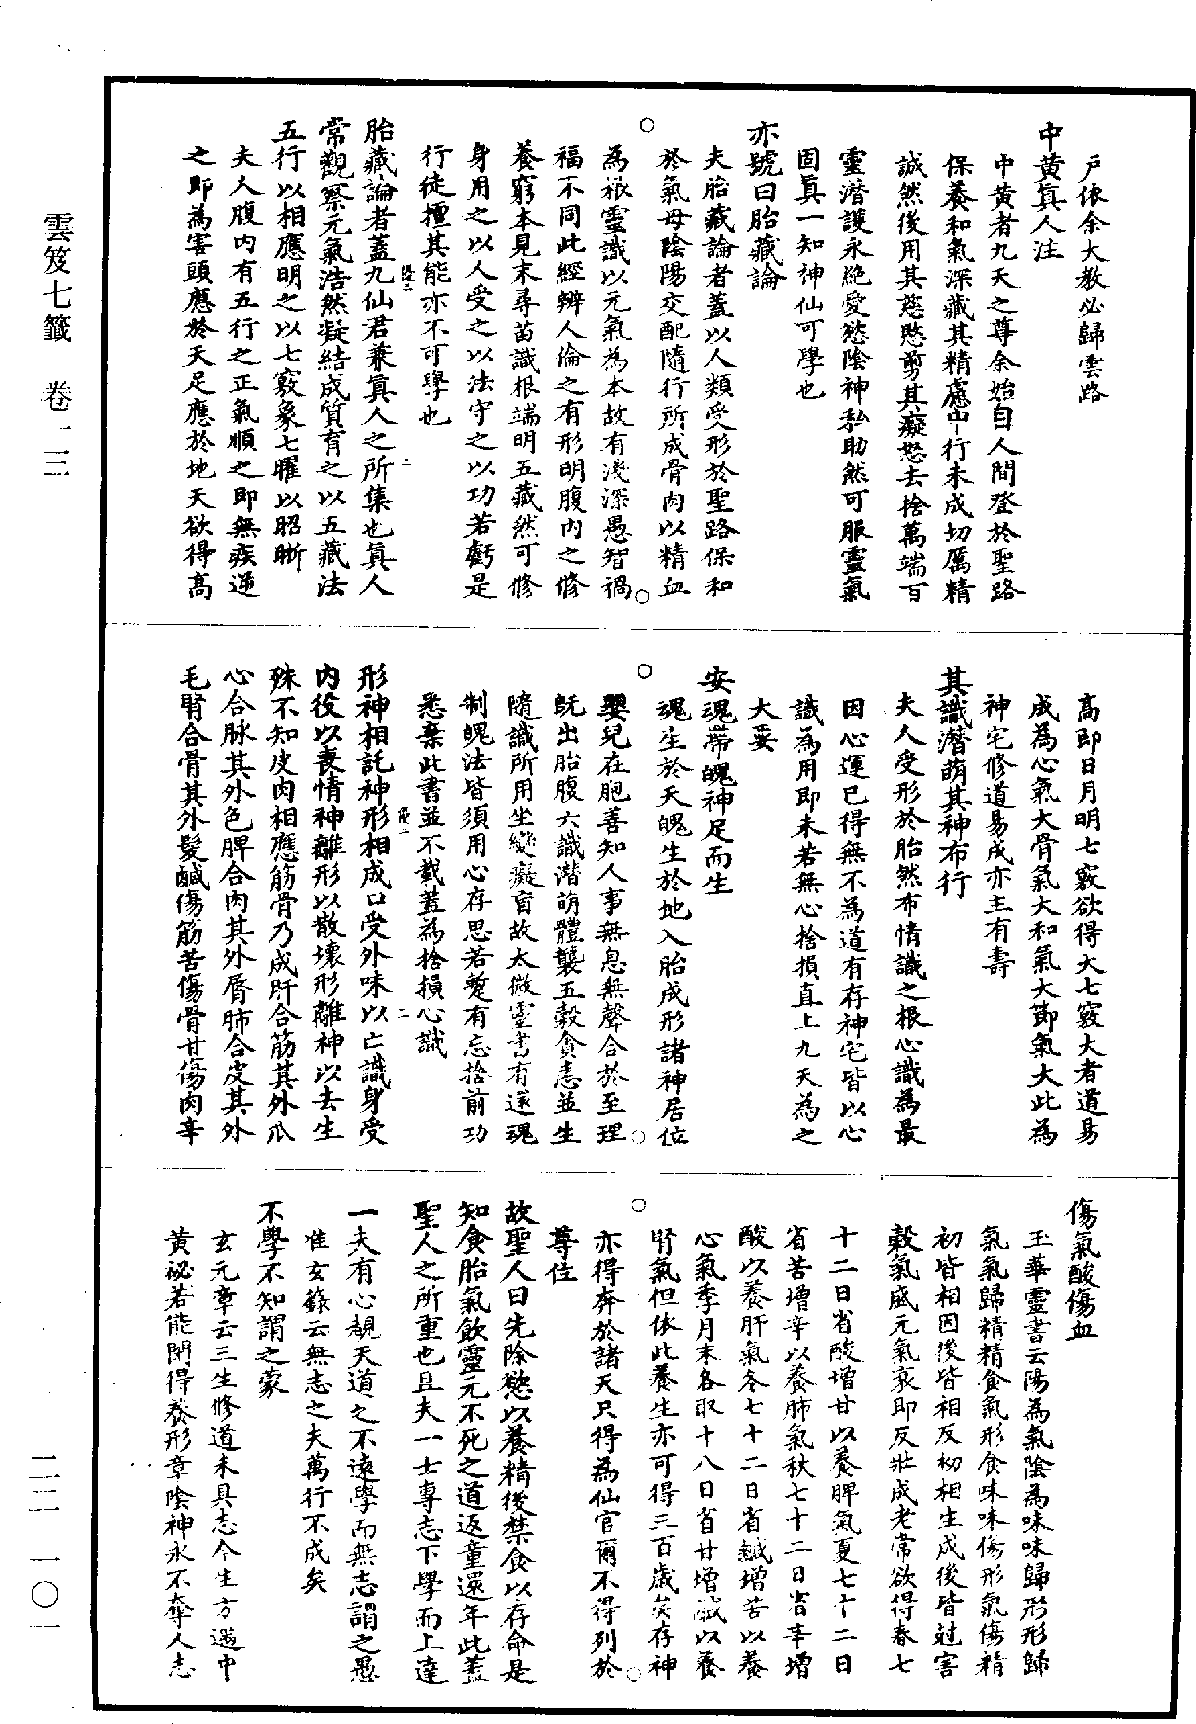 戶依余大教必歸雲路
中黃真人注
中黃者九天之尊余始自人間登於聖路
保養和氣深藏其精處中行未成切厲精
誠然後用其慈愍剪其癡怒去捨萬端百
靈潛護永絕愛慾陰神私助然可服靈氣
固真一知神仙可學也
亦號曰胎藏論
夫胎藏論者蓋以人類受形於聖路保和
於氣母陰陽交配隨行所成骨肉以精血
為根靈識以元氣為本故有淺深愚智禍
福不同此經辨人倫之有形明腹内之修
養窮本見末尋苗識根端明五藏然可修
身用之以人受之以法守之以功若虧是
行徒擅其能亦不可學也
胎藏論者蓋九仙君兼真人之所集也真人
常觀察元氣浩然凝結成質育之以五藏法
五行以相應明之以七竅象七曜以昭晰
夫人腹内有五行之正氣順之即無疾逆
之即為害頭應於天足應於地天欲得高
高即日月明七竅欲得大七竅大者道易
成為心氣大骨氣大和氣大節氣大此為
神宅修道易成亦主有壽
其識潛萌其神布行
夫人受形於胎然布情識之根心識為最
因心運已得無不為道有存神宅皆以心
識為用即未若無心捨損直上九天為之
大要
安魂帶魄神足而生
魂生於天魄生於地入胎成形諸神居位
嬰兒在胞善知人事無息無聲合於至理
既出胎腹六識潛萌體襲五穀貪恚並生
隨識所用坐變癡盲故太微靈書有遂魂
制魄法皆須用心存思若蹔有忘捨前功
悉棄此書並不載蓋為捨損心識
形神相託神形相成口受外味以亡識身受
内役以喪情神離形以散壞形離神以去生
殊不知皮肉相應筋骨乃成肝合筋其外爪
心合脉其外色脾合肉其外脣肺合皮其外
毛腎合骨其外髮鹹傷筋苦傷骨甘傷肉辛
傷氣酸傷血
玉華靈書云陽為氣陰為味味歸形形歸
氣氣歸精精食氣形食味味傷形氣傷精
初皆相因後皆相反初相生成後皆剋害
穀氣盛元氣衰即反壯成老常欲得春七
十二日省酸增甘以養脾氣夏七十二日
省苦增辛以養肺氣秋七十二日省辛增
酸以養肝氣冬七十二日省鹹增苦以養
心氣季月末各取十八日省甘增鹹以養
腎氣但依此養生亦可得三百歲矣存神
亦得奔於諸天只得為仙官爾不得列於
尊位
故聖人曰先除慾以養精後禁食以存命是
知食胎氣飲靈元不死之道返童還年此蓋
聖人之所重也且夫一士專志下學而上達
一夫有心覩天道之不遠學而無志謂之愚
惟玄籙云無志之夫萬行不成矣
不學不知謂之蒙
玄元章云三生修道未具志今生方遇中
黃祕若能閉得養形章陰神永不奪人志
雲笈七籤　卷一三
二二—一〇一